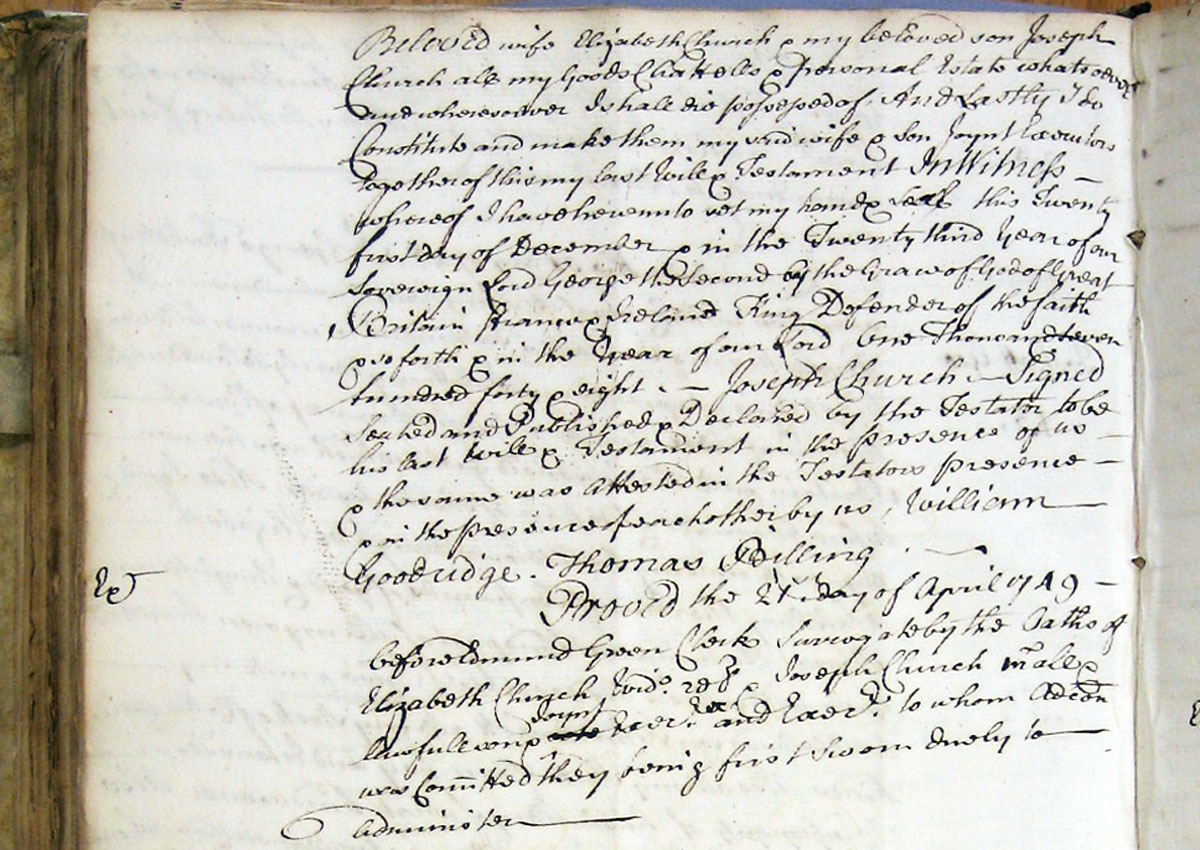 Beloved wife Elizabeth Church & my beloved son Joseph
Church all my Goods Chattells & personal Estate whatsoever
and wheresoever I shall die possessed of And Lastly I do
Constitute and make them my said wife & son Joynt Executors
together of this my last Will & Testament In Witness –
whereof I have hereunto set my hand & seal this Twenty
first day of December & in the Twenty third Year of our
Sovereign Lord George the Second by the Grace of God of Great
Britain France & Ireland King Defender of the faith
& so forth & in the Year of our Lord One Thousand seven
hundred forty & eight . – Joseph Church – Signed
Sealed and Published & Declared by the Testator to be
his last Will & Testament in the presence of us –
& the same was Attested in the Testators presence –
& in the presence of each other by us , William –
Goodridge . Thomas Billing . –
Ex
Proved the day of April 1749 –
before Edmund Green Clerk Surrogate by the Oaths of
Elizabeth Church Wido. rel & Joseph Church &
lawfull son & joynt Exer. and Exer. to whom Adcon
was Comitted they being first Sworn duely to
Administer